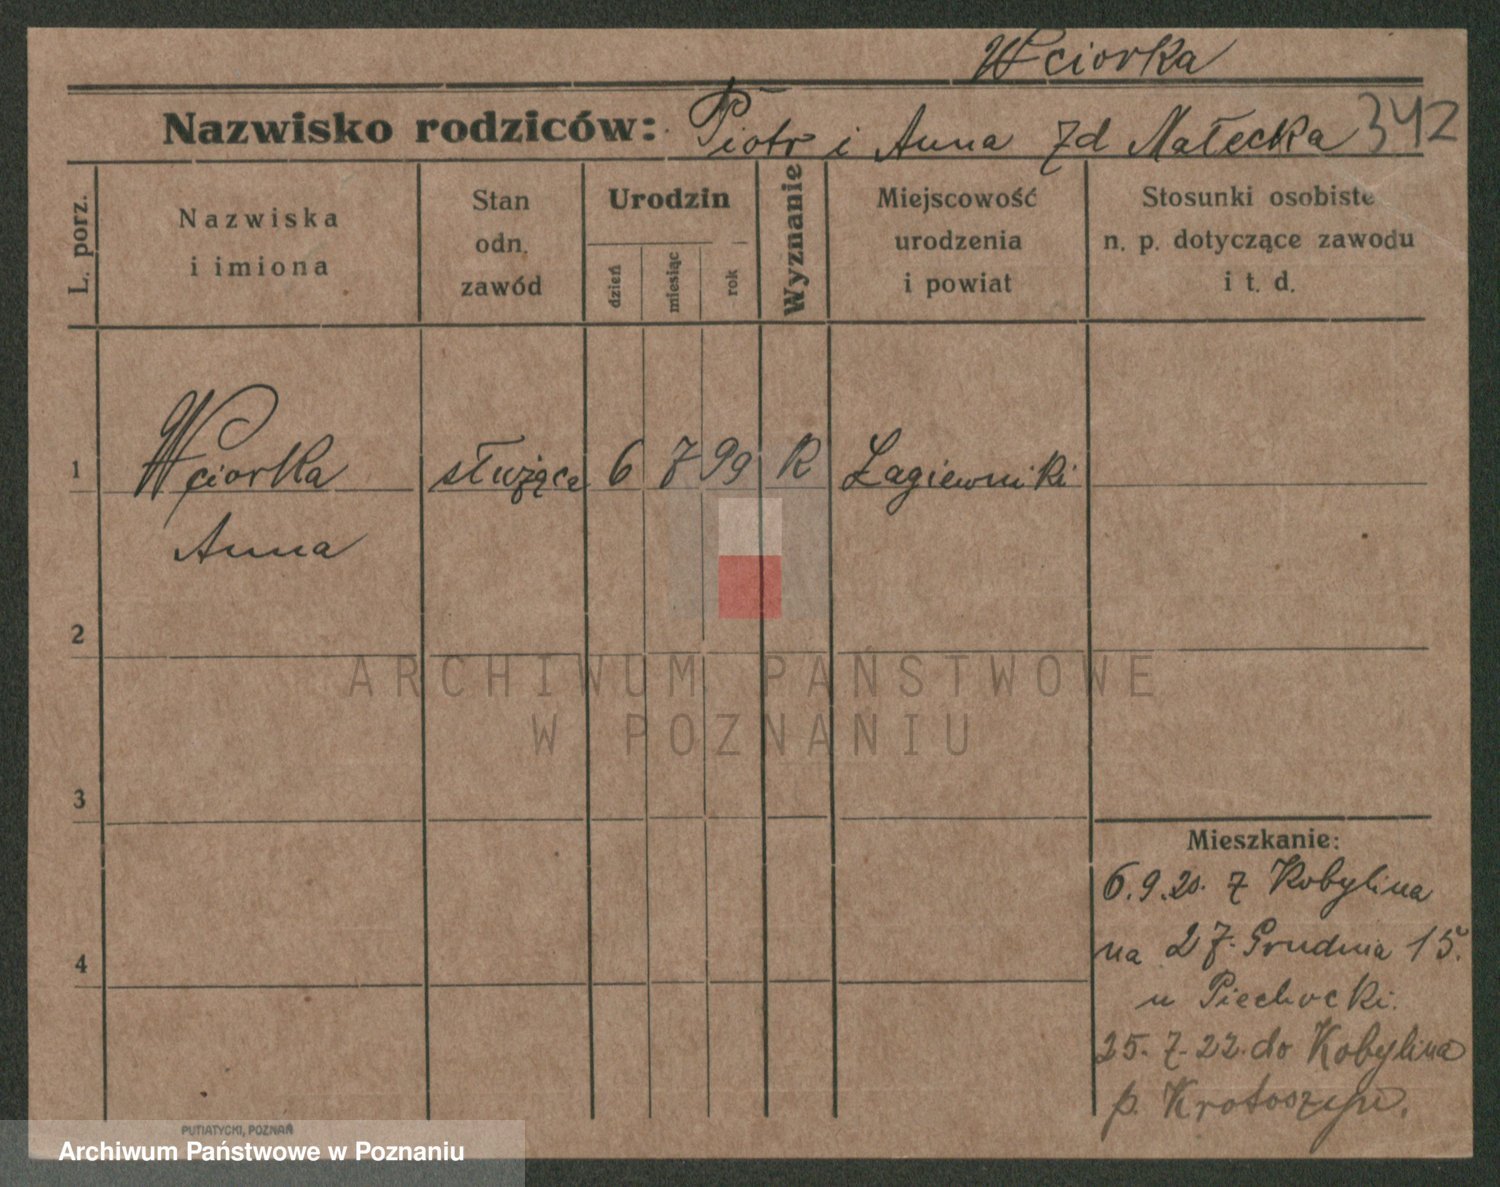 Wciorka
Nazwisko rodziców: Piotr i Anna zd Małecka 342
L. porz.
Nazwiska
i imiona
Stan
odn.
zawód
Urodzin
dzień
miesiąc
rok
Wyznanie
Miejscowość
urodzenia
i powiat
Stosunki osobiste
n. p. dotyczące zawodu
i t. d.
1 Wciorka służąca 6 7 99 K Łagiewniki
Anna
2
ARCHIWUM PAŃSTWOWE
W POZNANIU
3
Mieszkanie:
6.9.20. z Kobylina
na 27. Grudnia 15.
4
u Piechocki.
25.7.22. do Kobylina
p. Krotoszyn.
PUTIATYCKI, POZNAŃ
Archiwum Państwowe w Poznaniu